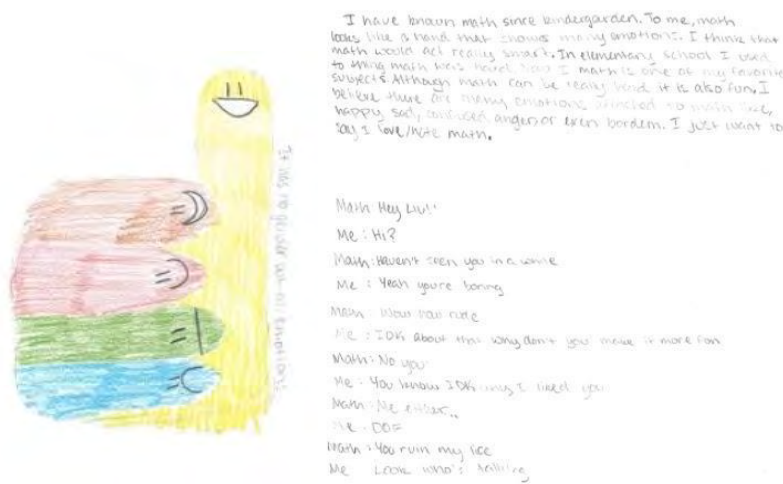 I have known math since kindergarden. To me, math
looks like a hand that shows many emotions. I think that
math would act really smart. In elementary school I used
to thing math was hard. Now I math is one of my favorite
subjects. Although math can be really hard it is also fun. I
believe there are many emotions attacted to math like,
happy, sad, confused, anger, or even bordem. I just want to
say I love/hate math.
It has no gender only emotions.
Math: Hey Liv!!
Me: Hi?
Math: Haven't seen you in a while
Me: Yeah youre boring
Math: Wow now rude
Me: IDK about that why don't you make it more fun
Math: No you
Me: You know IDK why I liked you
Math: Me either..
Me: OOF
Math: You ruin my life
Me Look who's talking